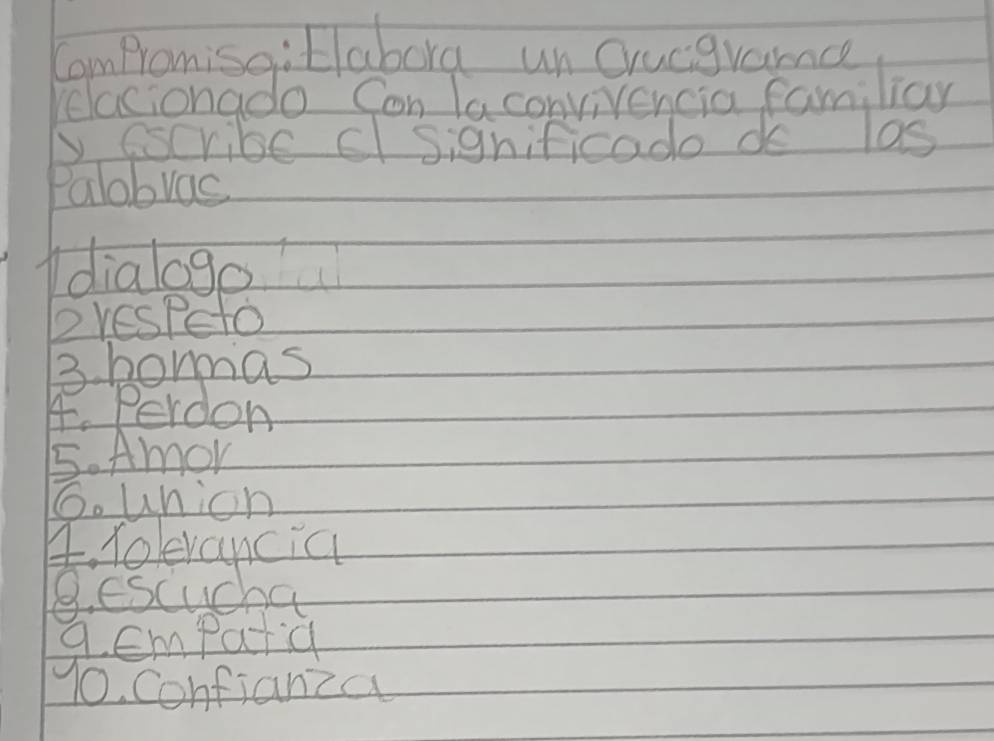 ComPromiso: Elabora un Crucigrama
relacionado Con la convivencia familiar
y escribe el significado de las
Palabras
1 dialogo
2 resPeto
3. normas
4. Perdon
5. Amor
6. union
7. Tolerancia
8. escucha
9. emPatia
10. confianza